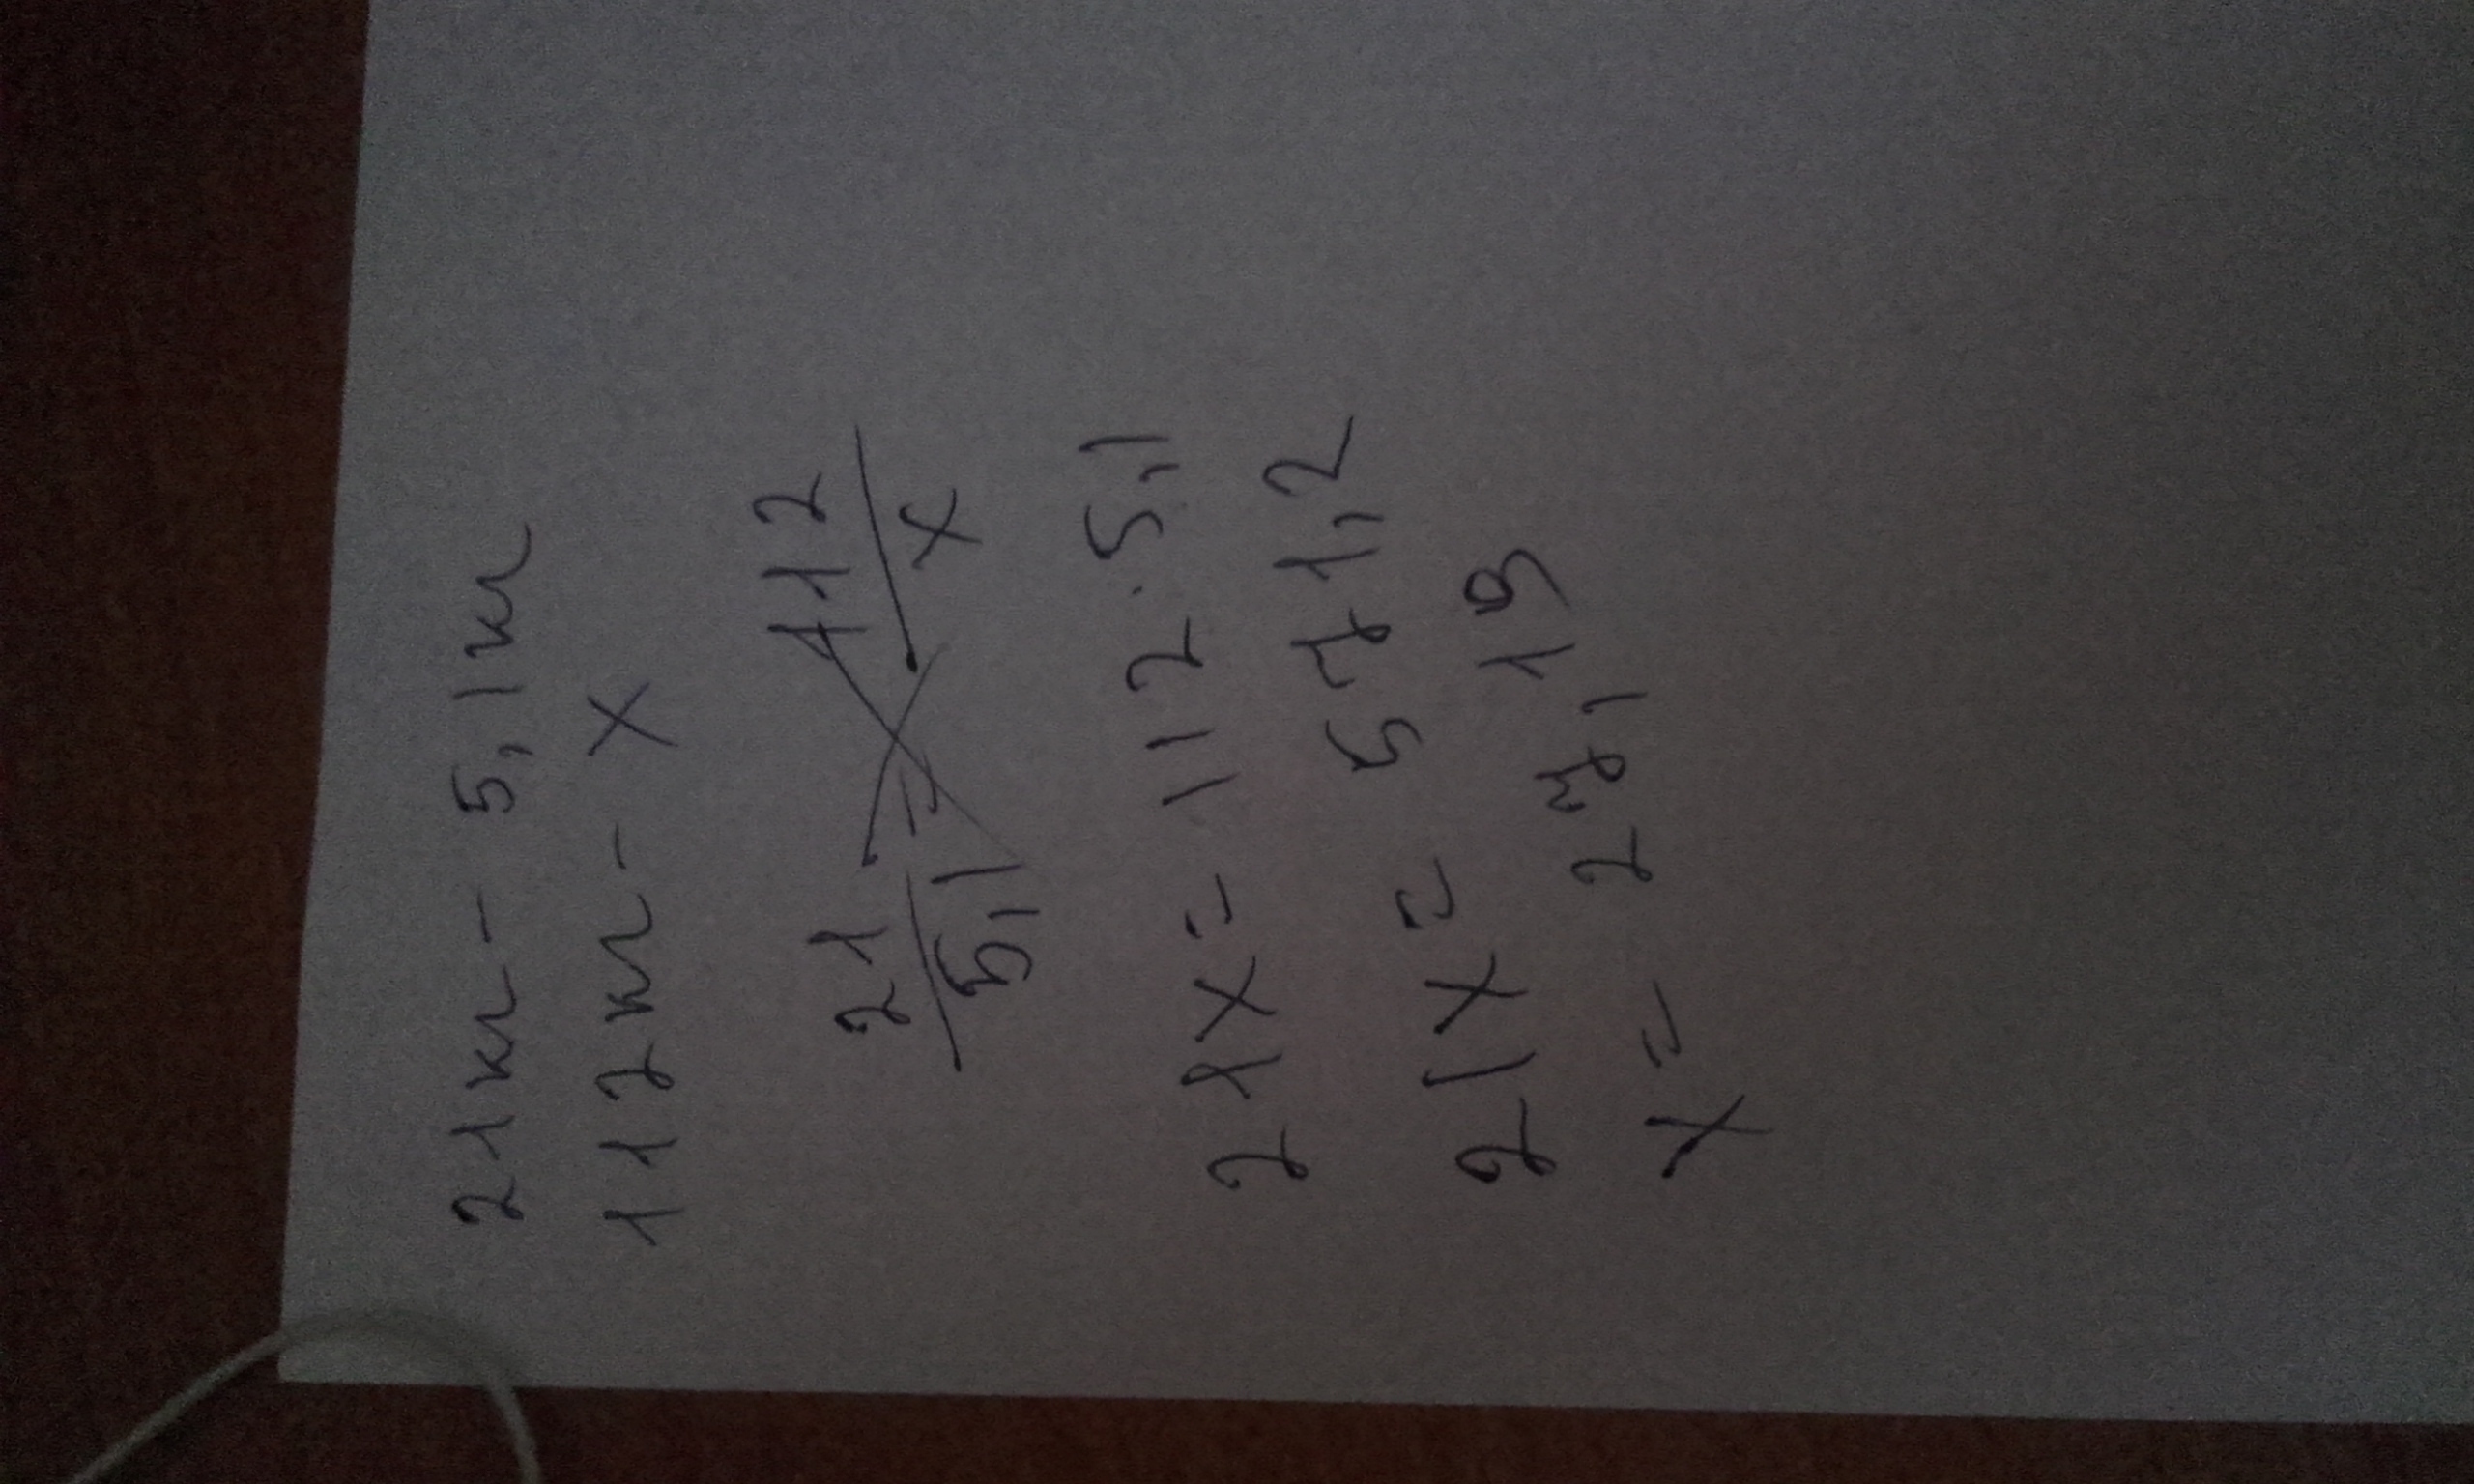 21кг - 5,1кг
112кг - x
21/5,1 = 112/x
21x = 112 · 5,1
21x = 571,2
x = 27,1 19